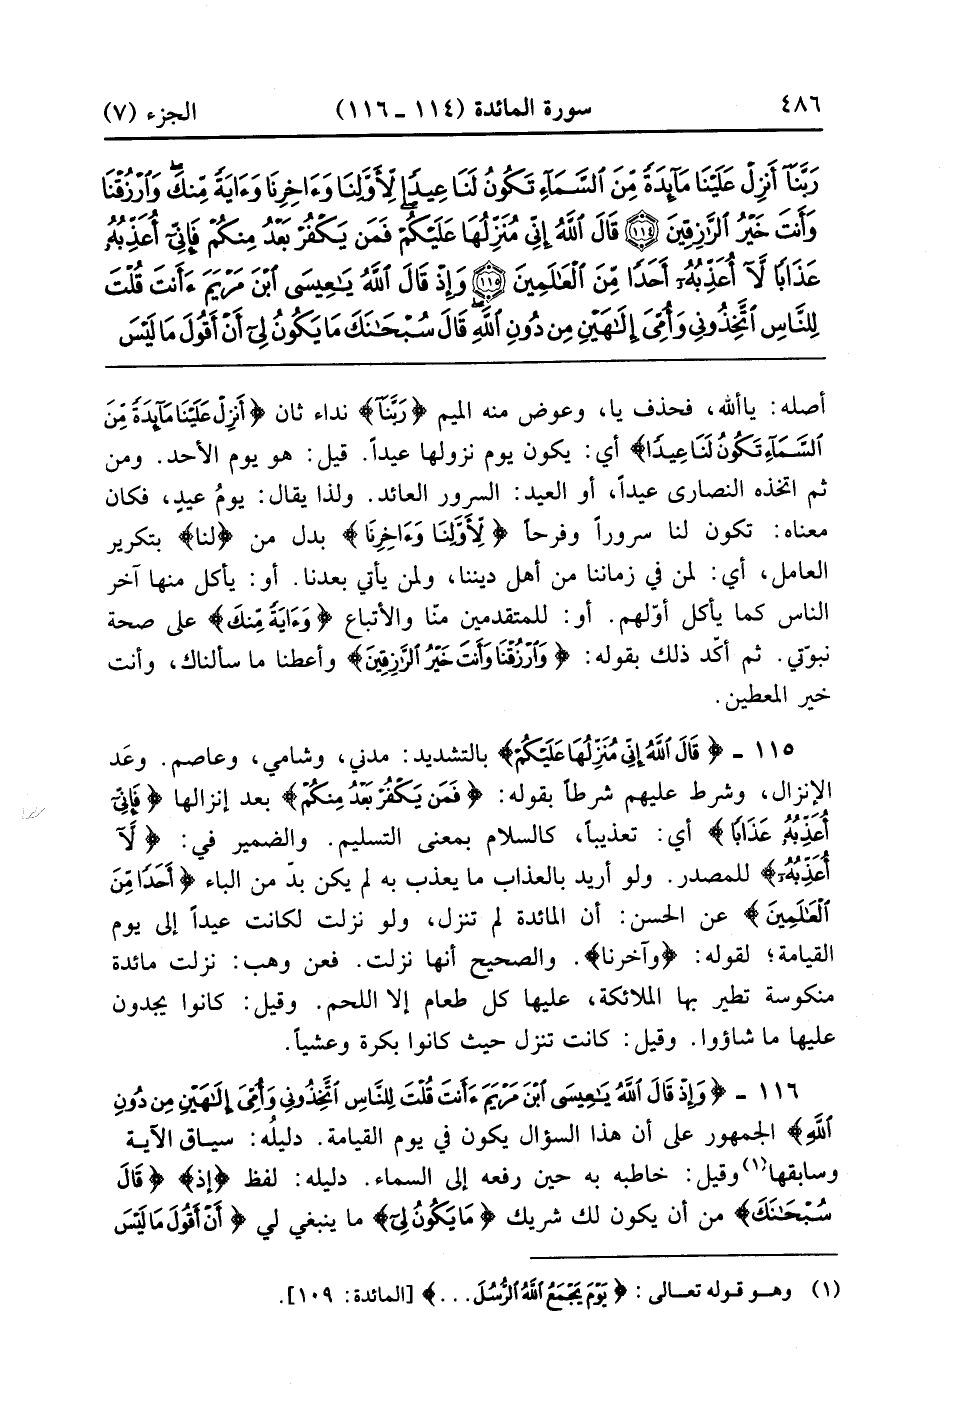 ٤٨٦ سورة المائدة (١١٤ ـ ١١٦) الجزء (٧)
رَبَّنَآ أَنزِلْ عَلَيْنَا مَآئِدَةً مِّنَ ٱلسَّمَآءِ تَكُونُ لَنَا عِيدًا لِّأَوَّلِنَا وَءَاخِرِنَا وَءَايَةً مِّنكَ وَٱرْزُقْنَا
وَأَنتَ خَيْرُ ٱلرَّٰزِقِينَ ﴿١١٤﴾ قَالَ ٱللَّهُ إِنِّى مُنَزِّلُهَا عَلَيْكُمْ فَمَن يَكْفُرْ بَعْدُ مِنكُمْ فَإِنِّىٓ أُعَذِّبُهُۥ
عَذَابًا لَّآ أُعَذِّبُهُۥٓ أَحَدًا مِّنَ ٱلْعَٰلَمِينَ ﴿١١٥﴾ وَإِذْ قَالَ ٱللَّهُ يَٰعِيسَى ٱبْنَ مَرْيَمَ ءَأَنتَ قُلْتَ
لِلنَّاسِ ٱتَّخِذُونِى وَأُمِّىَ إِلَٰهَيْنِ مِن دُونِ ٱللَّهِ قَالَ سُبْحَٰنَكَ مَا يَكُونُ لِىٓ أَنْ أَقُولَ مَا لَيْسَ
أصله: ياألله، فحذف يا، وعوض منه الميم ﴿رَبَّنَآ﴾ نداء ثان ﴿أَنزِلْ عَلَيْنَا مَآئِدَةً مِّنَ
ٱلسَّمَآءِ تَكُونُ لَنَا عِيدًا﴾ أي: يكون يوم نزولها عيداً. قيل: هو يوم الأحد. ومن
ثم اتخذه النصارى عيداً، أو العيد: السرور العائد. ولذا يقال: يومُ عيدٍ، فكان
معناه: تكون لنا سروراً وفرحاً ﴿لِّأَوَّلِنَا وَءَاخِرِنَا﴾ بدل من ﴿لنا﴾ بتكرير
العامل، أي: لمن في زماننا من أهل ديننا، ولمن يأتي بعدنا. أو: يأكل منها آخر
الناس كما يأكل أوّلهم. أو: للمتقدمين منّا والأتباع ﴿وَءَايَةً مِّنكَ﴾ على صحة
نبوّتي. ثم أكّد ذلك بقوله: ﴿وَٱرْزُقْنَا وَأَنتَ خَيْرُ ٱلرَّٰزِقِينَ﴾ وأعطنا ما سألناك، وأنت
خير المعطين.
١١٥ ـ ﴿قَالَ ٱللَّهُ إِنِّى مُنَزِّلُهَا عَلَيْكُمْ﴾ بالتشديد: مدني، وشامي، وعاصم. وعَد
الإنزال، وشرط عليهم شرطاً بقوله: ﴿فَمَن يَكْفُرْ بَعْدُ مِنكُمْ﴾ بعد إنزالها ﴿فَإِنِّىٓ
أُعَذِّبُهُۥ عَذَابًا﴾ أي: تعذيباً، كالسلام بمعنى التسليم. والضمير في: ﴿لَّآ
أُعَذِّبُهُۥٓ﴾ للمصدر. ولو أريد بالعذاب ما يعذب به لم يكن بدّ من الباء ﴿أَحَدًا مِّنَ
ٱلْعَٰلَمِينَ﴾ عن الحسن: أن المائدة لم تنزل، ولو نزلت لكانت عيداً إلى يوم
القيامة؛ لقوله: ﴿وآخرنا﴾. والصحيح أنها نزلت. فعن وهب: نزلت مائدة
منكوسة تطير بها الملائكة، عليها كل طعام إلا اللحم. وقيل: كانوا يجدون
عليها ما شاؤوا. وقيل: كانت تنزل حيث كانوا بكرة وعشياً.
١١٦ ـ ﴿وَإِذْ قَالَ ٱللَّهُ يَٰعِيسَى ٱبْنَ مَرْيَمَ ءَأَنتَ قُلْتَ لِلنَّاسِ ٱتَّخِذُونِى وَأُمِّىَ إِلَٰهَيْنِ مِن دُونِ
ٱللَّهِ﴾ الجمهور على أن هذا السؤال يكون في يوم القيامة. دليلُه: سياق الآية
وسابقها(١) وقيل: خاطبه به حين رفعه إلى السماء. دليله: لفظ ﴿إذ﴾ ﴿قَالَ
سُبْحَٰنَكَ﴾ من أن يكون لك شريك ﴿مَا يَكُونُ لِىٓ﴾ ما ينبغي لي ﴿أَنْ أَقُولَ مَا لَيْسَ
(١) وهو قوله تعالى: ﴿يَوْمَ يَجْمَعُ ٱللَّهُ ٱلرُّسُلَ...﴾ [المائدة: ١٠٩].